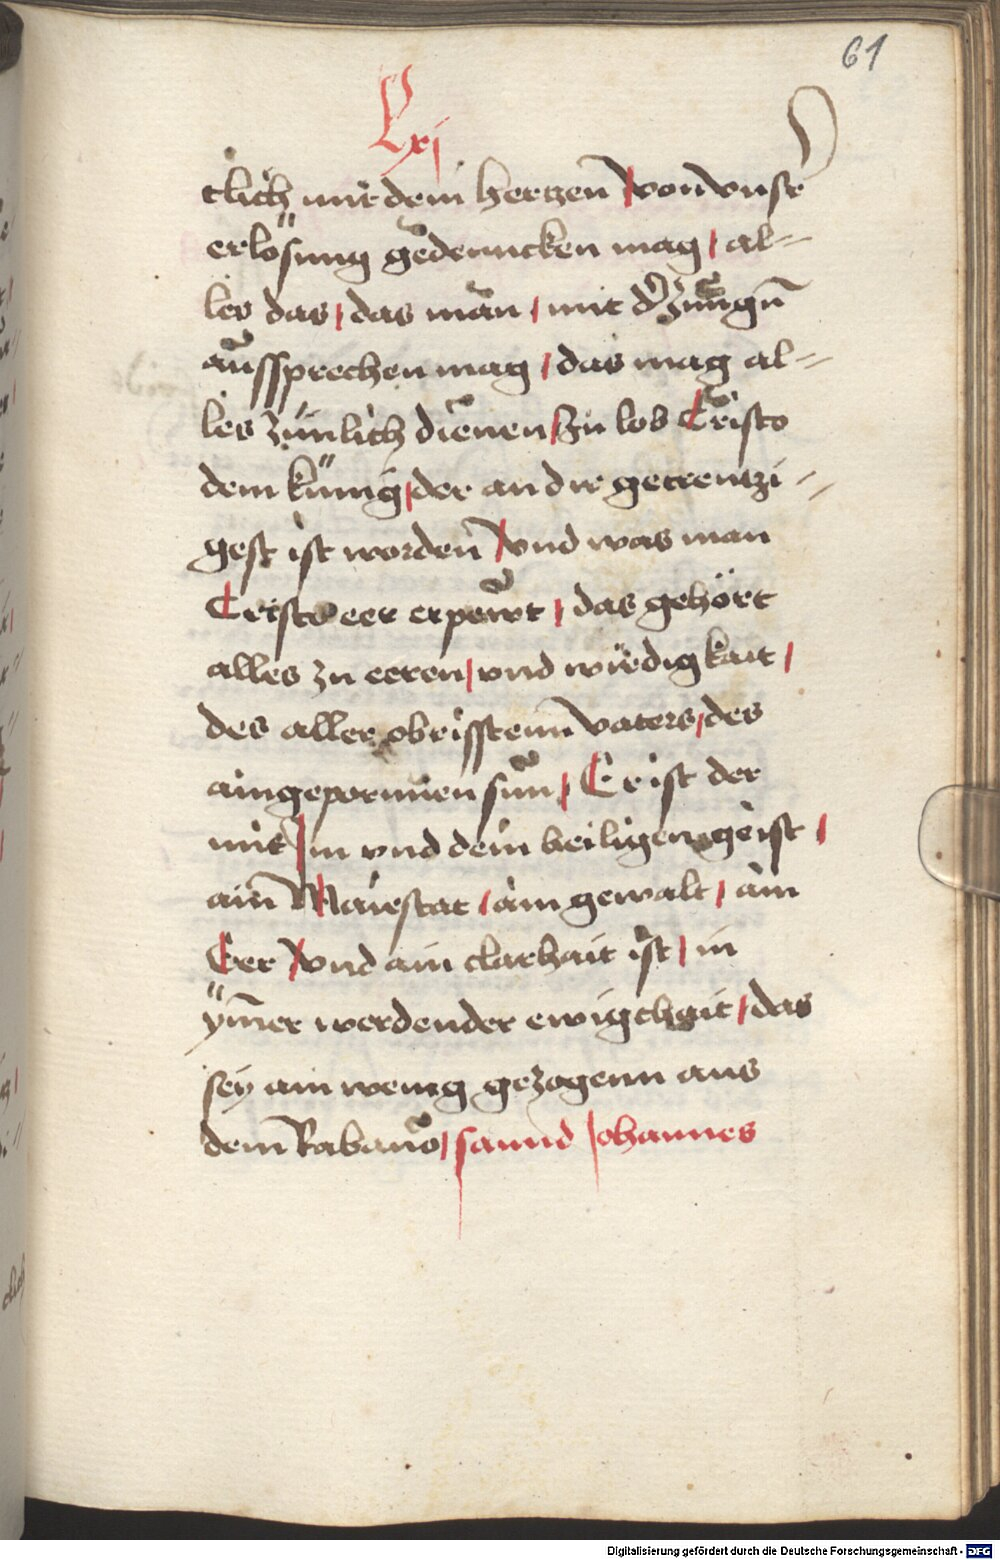 61
Lxj
tlich mit dem hertzen von vnser
erlösung gedenncken mag / al=
les das / das man / mit der zungen
aussprechen mag / das mag al=
les zimlich dienen / zu lob Cristo
dem künig / der an dir gecreutzi=
gest ist worden / vnd was man
Cristo eer erpewt / das gehört
alles zu eeren / vnd wirdigkait /
des aller obrissten vaters / des
aingepornnen sun / Er ist der
mit im vnd dem heiligen geist /
ain Maiestat / ain gewalt / ain
Eer vnd ain clarhait ist / in
ÿmer werdender ewigchait / das
sey ain wenig gezogenn aus
dem Rabano / sannd Johannes
Digitalisierung gefördert durch die Deutsche Forschungsgemeinschaft - DFG